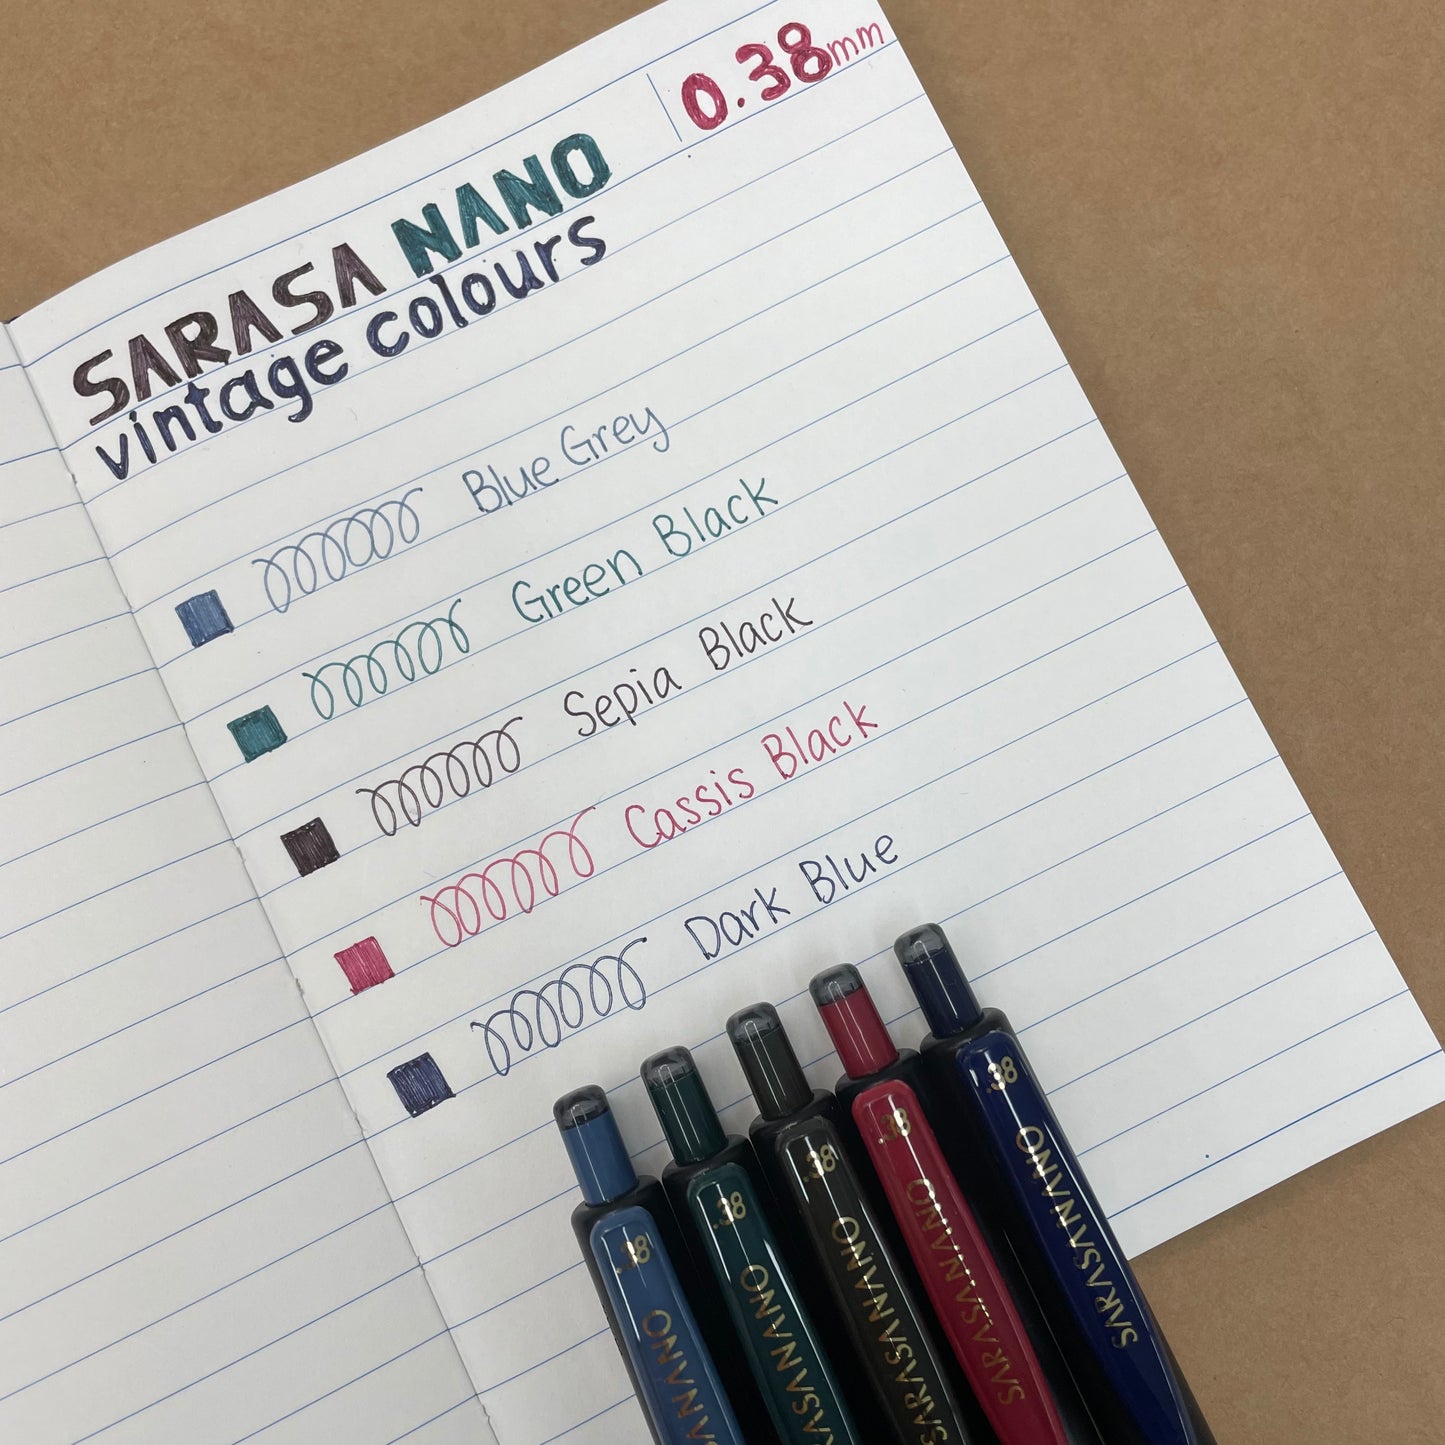 0.38mm
SARASA NANO
vintage colours
Blue Grey
Green Black
Sepia Black
Cassis Black
Dark Blue
.38
SARASANANO
.38
SARASANANO
.38
SARASANANO
.38
SARASANANO
.38
SARASANANO